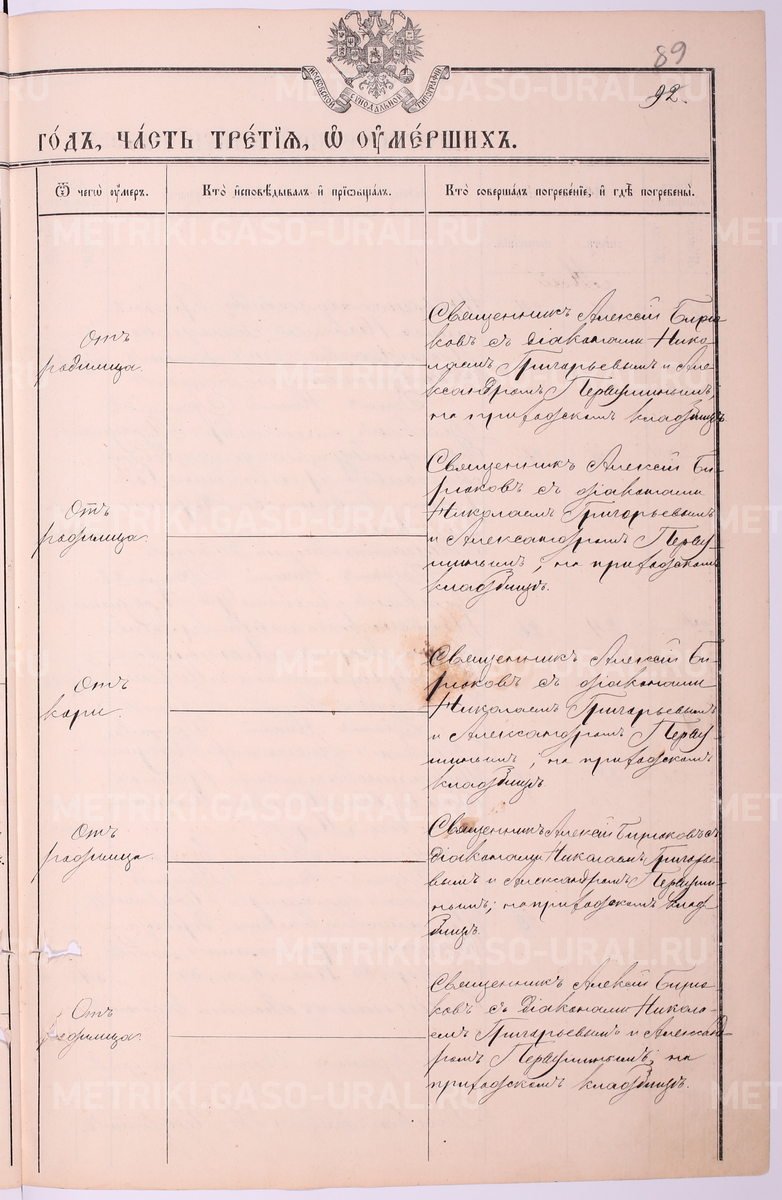 89
92.
МОСКОВСКОЙ СѴНОДАЛЬНОЙ ТИПОГРАФІИ
го́дъ, ча́сть тре́тїѧ, ѡ҆ ᲂу҆ме́ршихъ.
Ѿ чегѡ̀ ᲂу҆́меръ.
Кто̀ и҆сповѣ́дывалъ и҆ прїѡбща́лъ.
Кто̀ соверша́лъ погребе́нїе, и҆ гдѣ̀ погребены̀.
Отъ
родимца.
Священникъ Алексій Бирю
ковъ съ діаконами Нико
лаемъ Григорьевымъ и Але
ксандромъ Первушинымъ,
на приходскомъ кладбищѣ
Отъ
родимца.
Священникъ Алексій Би-
рюковъ съ діаконами
Николаемъ Григорьевымъ
и Александромъ Перву-
шинымъ, на приходскомъ
кладбищѣ.
Отъ
кори.
Священникъ Алексій Би-
рюковъ съ діаконами
Николаемъ Григорьевымъ
и Александромъ Перву-
шинымъ, на приходскомъ
кладбищѣ
Отъ
родимца.
Священникъ Алексій Бирюковъ съ
діаконами Николаемъ Григорье-
вымъ и Александромъ Первуши-
нымъ, на приходскомъ клад-
бищѣ.
Отъ
родимца.
Священникъ Алексій Бирю
ковъ съ діаконами Никола-
емъ Григорьевымъ и Алексан-
дромъ Первушинымъ, на
приходскомъ кладбищѣ.
METRIKI.GASO-URAL.RU